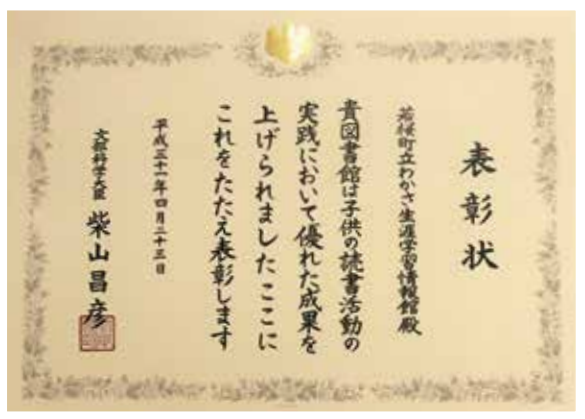 表彰状
若桜町立わかさ生涯学習情報館殿
貴図書館は子供の読書活動の
実践において優れた成果を
上げられましたここに
これをたたえ表彰します
平成三十一年四月二十三日
文部科学大臣 柴山昌彦